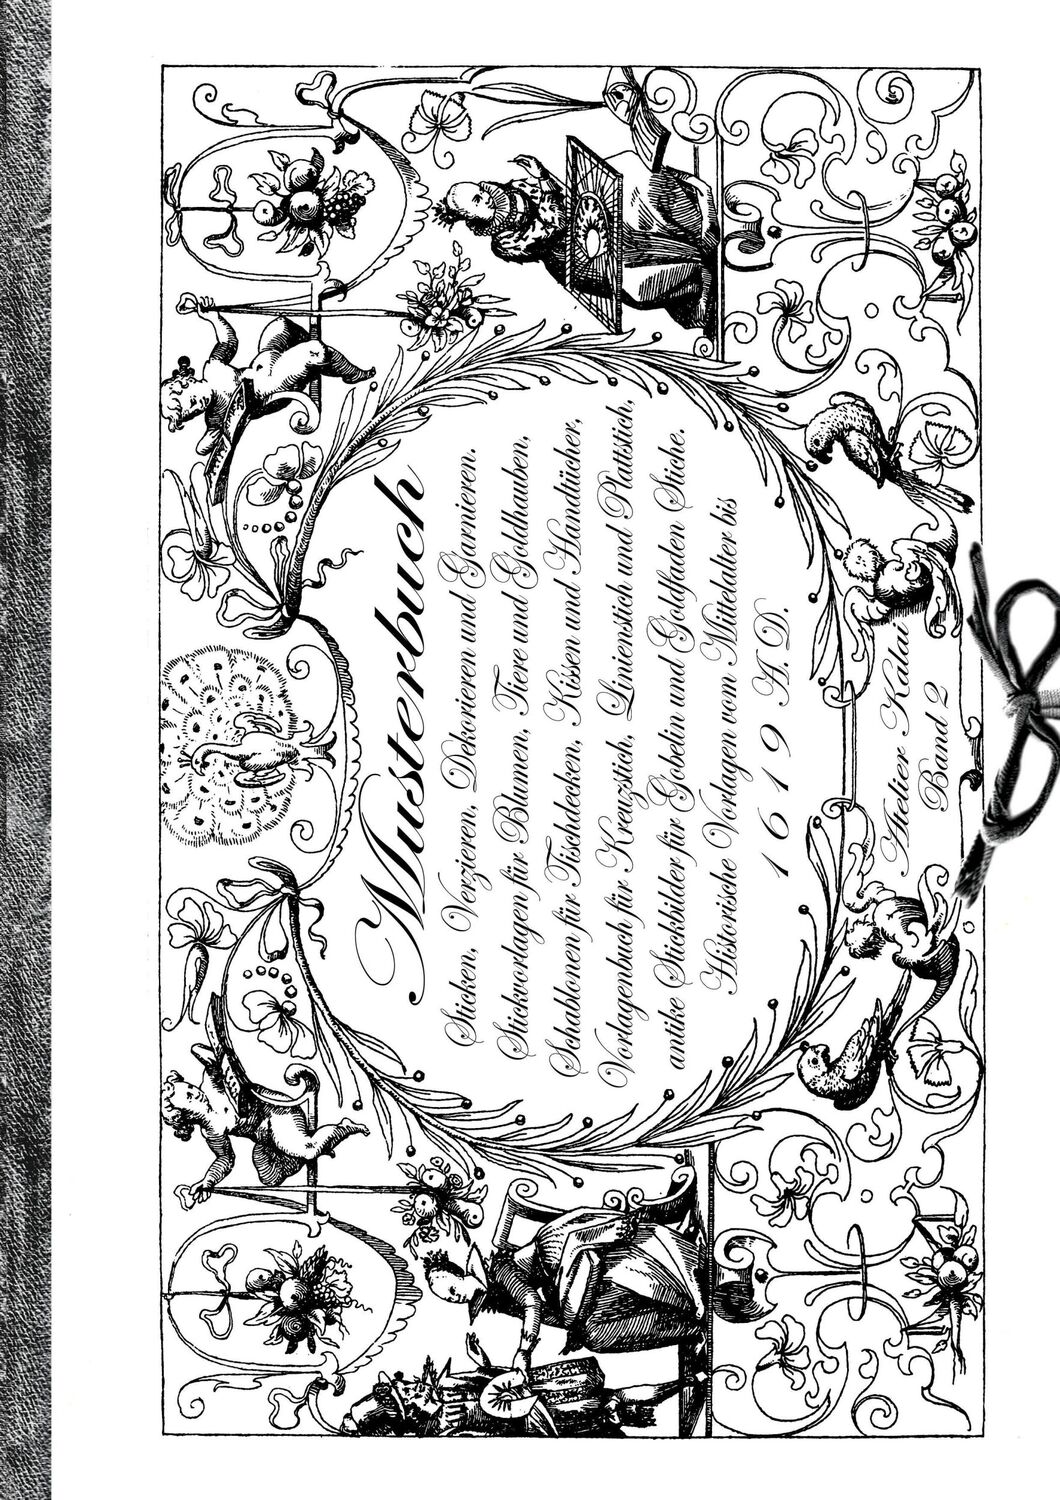 Musterbuch
Sticken, Verzieren, Dekorieren und Garnieren.
Stickvorlagen für Blumen, Tiere und Goldhauben,
Schablonen für Tischdecken, Kissen und Handtücher,
Vorlagenbuch für Kreuzstich, Linienstich und Plattstich,
antike Stickbilder für Gobelin und Goldfaden Stiche.
Historische Vorlagen vom Mittelalter bis
1619 A.D.
Atelier Kalai
Band 2